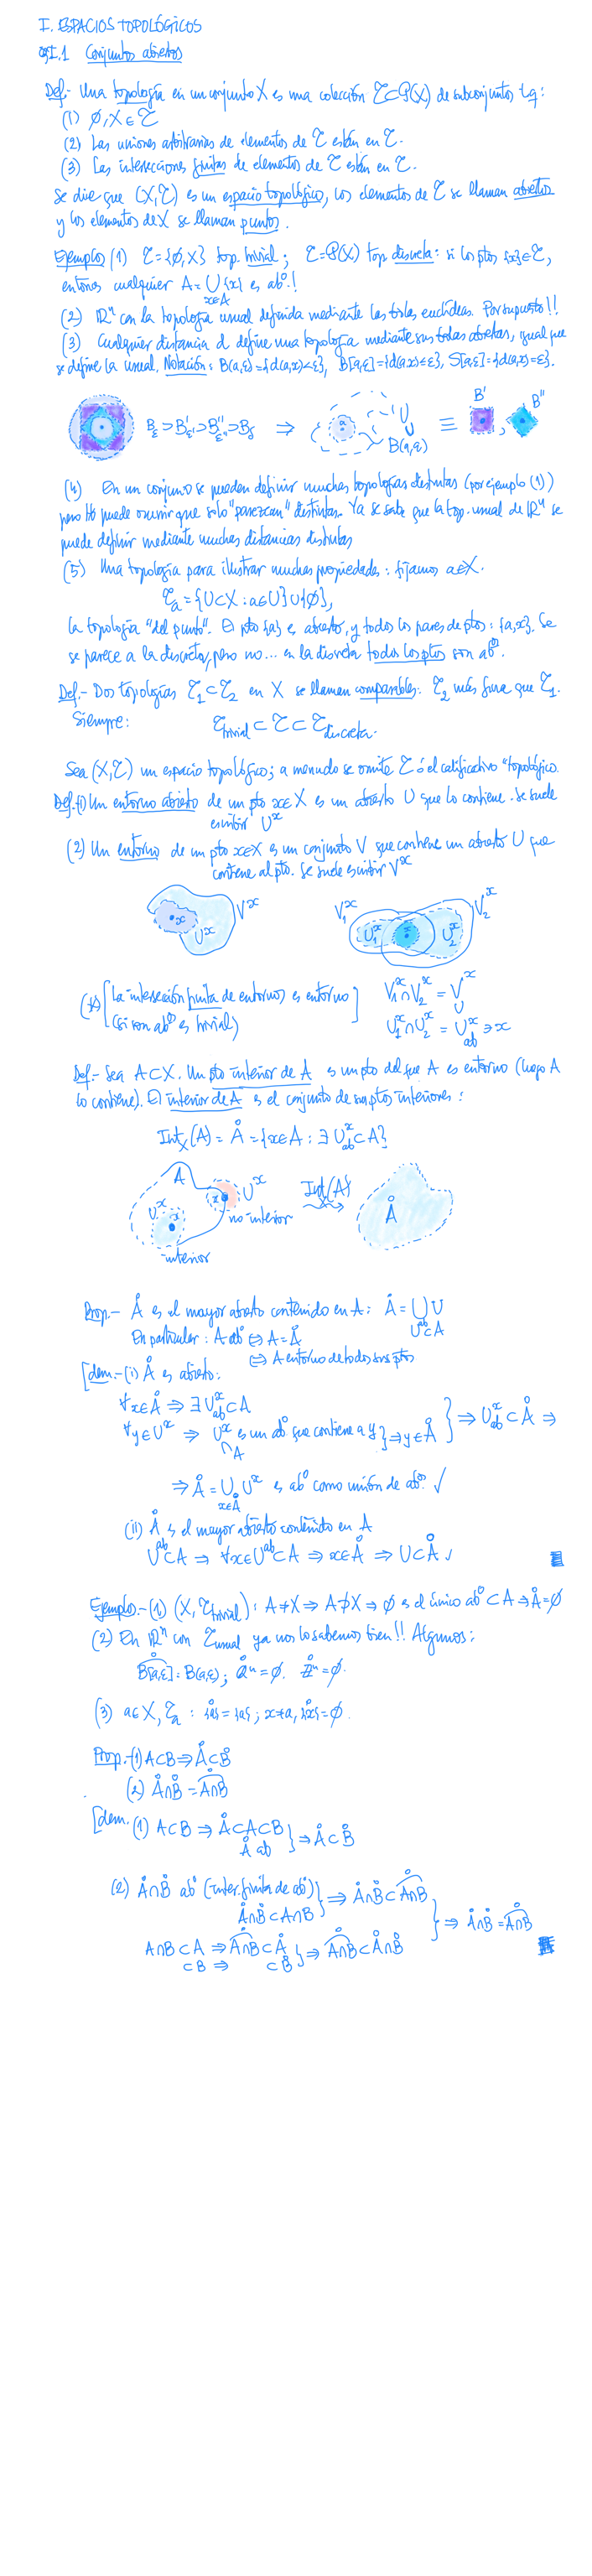 I. ESPACIOS TOPOLÓGICOS
§I.1 Conjuntos abiertos
Def.- Una topología en un conjunto X es una colección T⊂P(X) de subconjuntos t.q.:
(1) ∅, X ∈ T
(2) Las uniones arbitrarias de elementos de T están en T.
(3) Las intersecciones finitas de elementos de T están en T.
Se dice que (X,T) es un espacio topológico, los elementos de T se llaman abiertos
y los elementos de X se llaman puntos.
Ejemplos (1) T={∅,X} top. trivial; T=P(X) top. discreta: si los ptos {x}∈T,
entonces cualquier A = ∪{x} es abº!
x∈A
(2) ℝⁿ con la topología usual definida mediante las bolas euclídeas. Por supuesto!!
(3) Cualquier distancia d define una topología mediante sus bolas abiertas, igual que
se define la usual. Notación: B(a,ε)={d(a,x)<ε}, B[a,ε]={d(a,x)≤ε}, S[a,ε]={d(a,x)=ε}.
B_ε ⊃ B'_ε' ⊃ B''_ε'' ⊃ B_δ ⇒ a U B(a,ε) ≡ B' , B''
(4) En un conjunto se pueden definir muchas topologías distintas (por ejemplo (1))
pero puede ocurrir que solo "parezcan" distintas. Ya se sabe que la top. usual de ℝⁿ se
puede definir mediante muchas distancias distintas
(5) Una topología para ilustrar muchas propiedades: fijamos a∈X.
T_a = {U⊂X : a∈U}∪{∅},
la topología "del punto". El pto {a} es abierto, y todos los pares de ptos: {a,x}. Se
se parece a la discreta, pero no... en la discreta todos los ptos son abº.
Def.- Dos topologías T₁⊂T₂ en X se llaman comparables. T₂ más fina que T₁.
Siempre: T_trivial ⊂ T ⊂ T_discreta.
Sea (X,T) un espacio topológico; a menudo se omite T ó el calificativo "topológico.
Def.-(1) Un entorno abierto de un pto x∈X es un abierto U que lo contiene. Se suele
escribir Uˣ
(2) Un entorno de un pto x∈X es un conjunto V que contiene un abierto U que
contiene al pto. Se suele escribir Vˣ
x Uˣ Vˣ V₁ˣ U₁ˣ x U₂ˣ V₂ˣ
(*) [La intersección finita de entornos es entorno] V₁ˣ∩V₂ˣ = Vˣ
(si son abº es trivial) ∪
U₁ˣ∩U₂ˣ = Uˣ_ab ∋ x
Def.- Sea A⊂X. Un pto interior de A es un pto del que A es entorno (luego A
lo contiene). El interior de A es el conjunto de sus ptos interiores:
Int_X(A) = Å = {x∈A : ∃ Uˣ_ab ⊂ A}
A Uˣ x interior x Uˣ no interior Int(A) Å
Prop.- Å es el mayor abierto contenido en A: Å = ∪ U
U^ab⊂A
En particular: A abº ⇔ A = Å
⇔ A entorno de todos sus ptos
[dem.-(i) Å es abierto:
∀x∈Å ⇒ ∃ Uˣ_ab ⊂ A
∀y∈Uˣ ⇒ Uˣ es un abº que contiene a y } ⇒ y∈Å } ⇒ Uˣ_ab ⊂ Å ⇒
∩A
⇒ Å = ∪ Uˣ es abº como unión de abº. ✓
x∈Å
(ii) Å es el mayor abierto contenido en A
U^ab⊂A ⇒ ∀x∈U^ab⊂A ⇒ x∈Å ⇒ U⊂Å ✓
Ejemplos.-(1) (X,T_trivial): A≠X ⇒ A⊅X ⇒ ∅ es el único abº ⊂A ⇒ Å=∅
(2) En ℝⁿ con T_usual ya nos lo sabemos bien!! Algunos:
B[a,ε]° = B(a,ε); ℚ̊ⁿ = ∅. ℤ̊ⁿ = ∅.
(3) a∈X, T_a : {a}° = {a}; x≠a, {x}° = ∅.
Prop.-(1) A⊂B ⇒ Å⊂B̊
(2) Å∩B̊ = (A∩B)°
[dem. (1) A⊂B ⇒ Å⊂A⊂B
Å ab } ⇒ Å⊂B̊
(2) Å∩B̊ abº (inter. finita de abº)
Å∩B̊ ⊂ A∩B } ⇒ Å∩B̊ ⊂ (A∩B)°
A∩B ⊂ A ⇒ (A∩B)° ⊂ Å
⊂ B ⇒ ⊂ B̊ } ⇒ (A∩B)° ⊂ Å∩B̊ } ⇒ Å∩B̊ = (A∩B)°